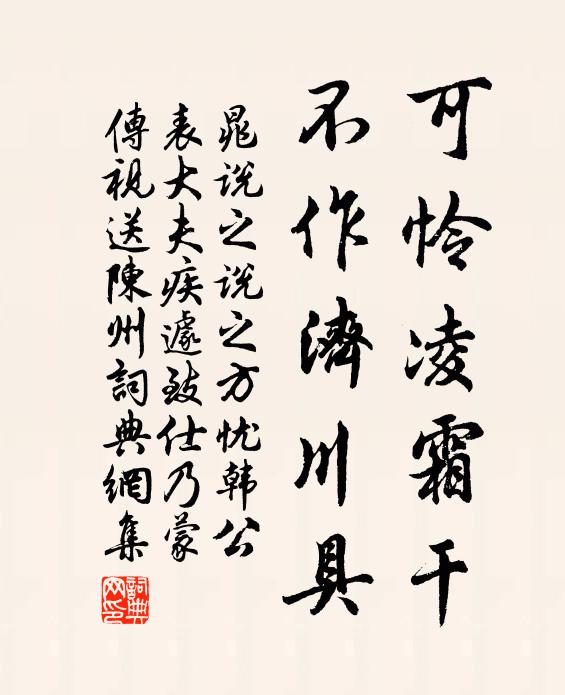 可怜凌霜干
不作濟川具
晁说之说之方忧韩公
表大夫疾遽致仕乃蒙
傳视送陳州詞典網集
詞典
网印